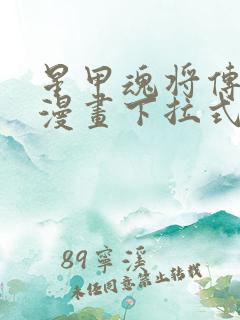 星甲魂将傳
漫畫下拉式
89寧溪
未经同意禁止转载